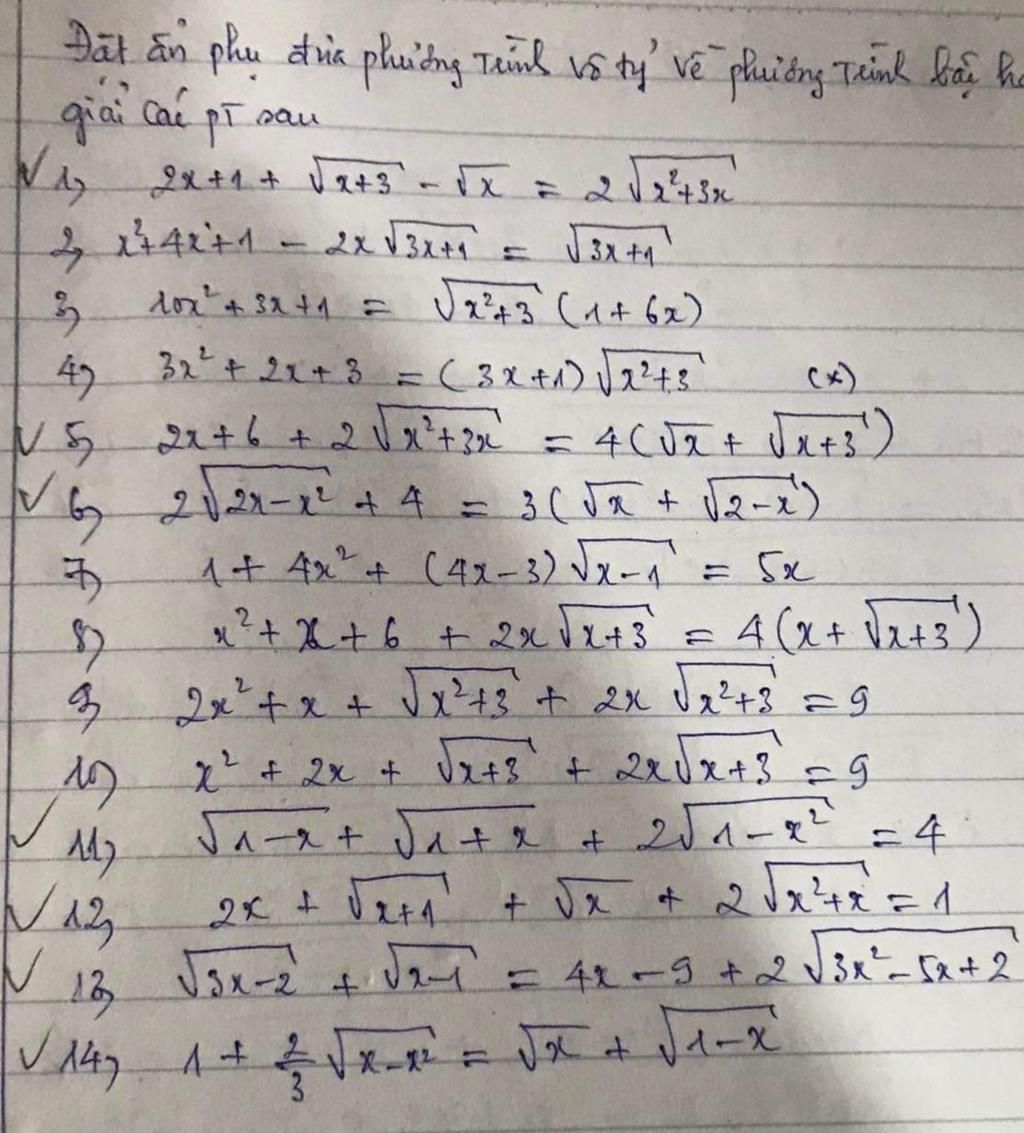 Đặt ẩn phụ đưa phương trình vô tỷ về phương trình bậc ha
giải các pT sau
√ 1, 2x+1 + √(x+3) - √x = 2√(x²+3x)
2, x²+4x+1 - 2x√(3x+1) = √(3x+1)
3, 10x² + 3x+1 = √(x²+3) (1+6x)
4, 3x² + 2x+3 = (3x+1)√(x²+3) (*)
√ 5, 2x+6 + 2√(x²+3x) = 4(√x + √(x+3))
√ 6, 2√(2x-x²) + 4 = 3(√x + √(2-x))
7, 1 + 4x² + (4x-3)√(x-1) = 5x
8, x² + x + 6 + 2x√(x+3) = 4(x+√(x+3))
9, 2x² + x + √(x²+3) + 2x√(x²+3) = 9
10, x² + 2x + √(x+3) + 2x√(x+3) = 9
√ 11, √(1-x) + √(1+x) + 2√(1-x²) = 4
√ 12, 2x + √(x+1) + √x + 2√(x²+x) = 1
√ 13, √(3x-2) + √(x-1) = 4x-9 + 2√(3x²-5x+2)
√ 14, 1 + 2/3 √(x-x²) = √x + √(1-x)